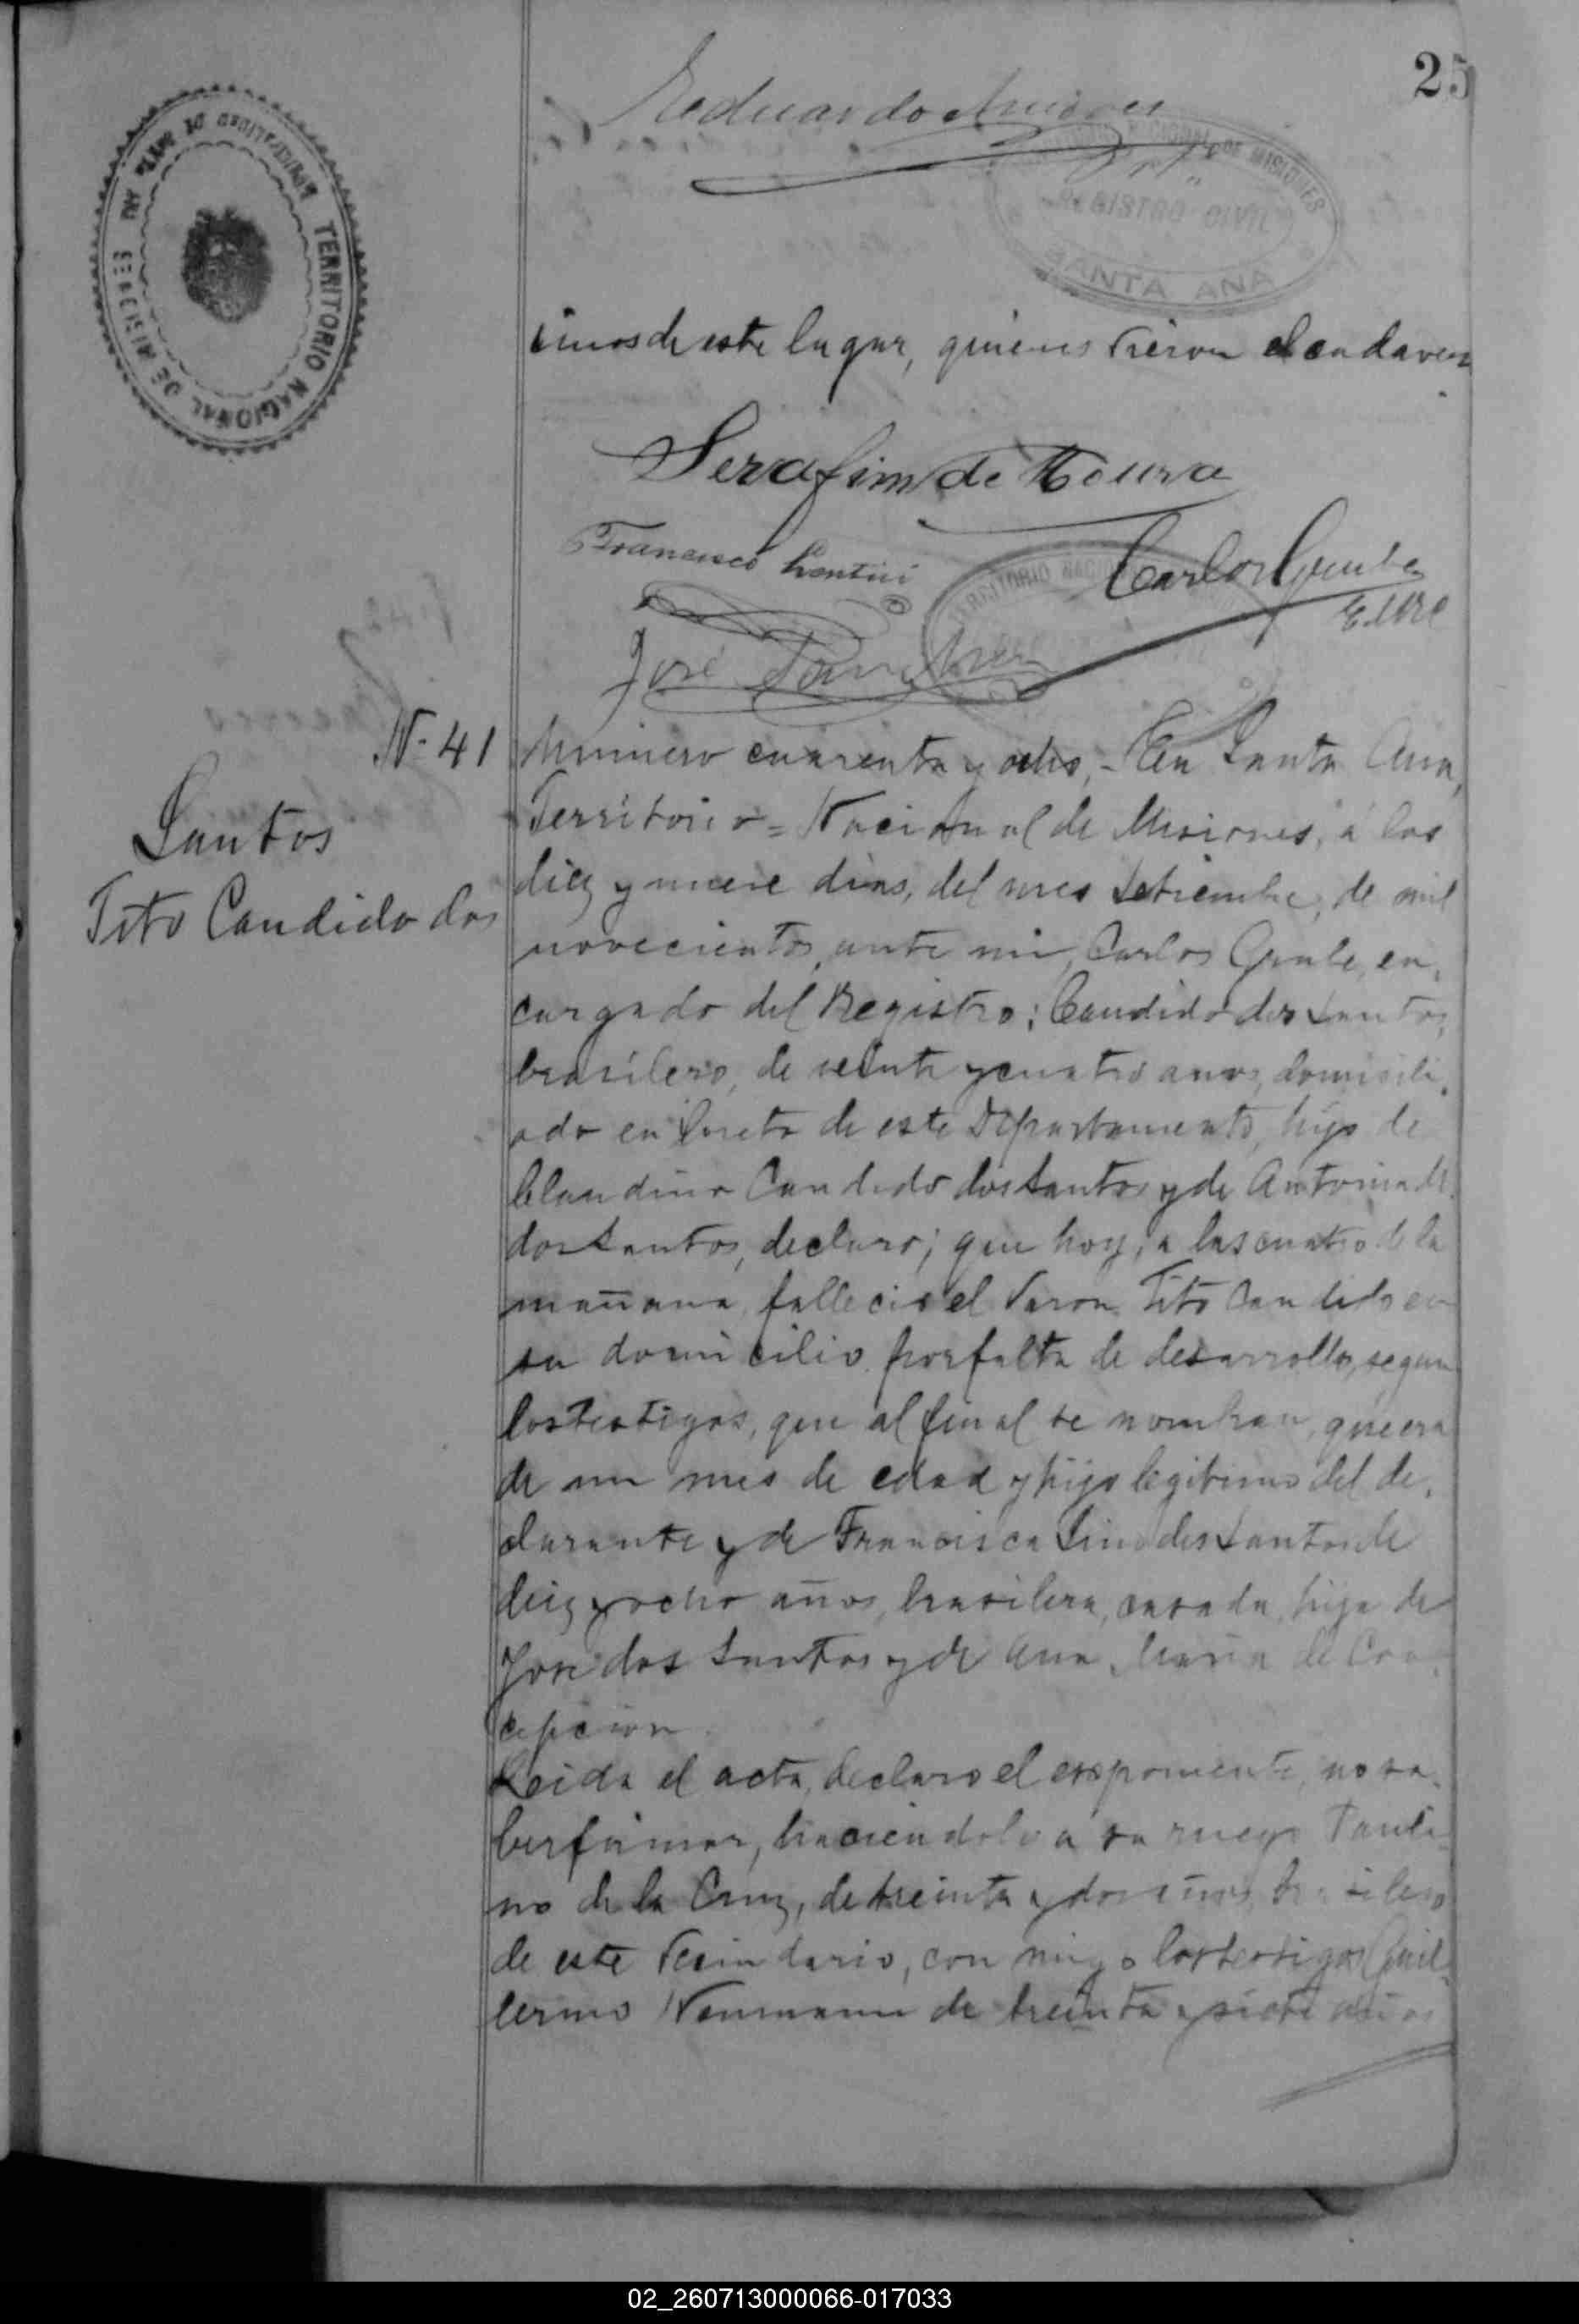 25
Eduardo
TERRITORIO NACIONAL DE MISIONES
REGISTRO CIVIL
SANTA ANA
MUNICIPALIDAD DE SANTA ANA
TERRITORIO NACIONAL DE MISIONES
cinos de este lugar, quienes vieron el cadaver
Serafim de Moura
Francisco Lentini
Carlos Grube
E. del RC
TERRITORIO NACIONAL
José Sanchez
Nº 41
Santos
Tito Candido dos
Numero cuarenta y ocho, - En Santa Ana,
Territorio = Nacional de Misiones, á los
diez y nueve dias, del mes Setiembre, de mil
novecientos, ante mi, Carlos Grube, en,
cargado del Registro; Candido dos Santos,
brasilero, de veinte y cuatro anos, domicili,
ado en Loreto de este Departamento, hijo de
Claudino Candido dos Santos y de Antonia M.
dos Santos, declaro; que hoy, a las cuatro de la
mañana, fallecio el Varon Tito Candido en
su domicilio por falta de desarrollo, segun
los testigos, que al final se nombran, que era
de un mes de edad y hijo legitimo del de,
clarante y de Francisca Lino dos Santos de
diez y ocho años, brasilera, casada, hija de
Jose dos Santos y de Ana Maria de Con,
cepcion.
Leida el acta, declaro el exponente, no sa,
ber firmar, haciendolo a su ruego Pauli-
no de la Cruz, de treinta y dos años, brasilero
de este Vecindario, con migo los testigos Guil-
lermo Neumann de treinta y siete años
02_260713000066-017033